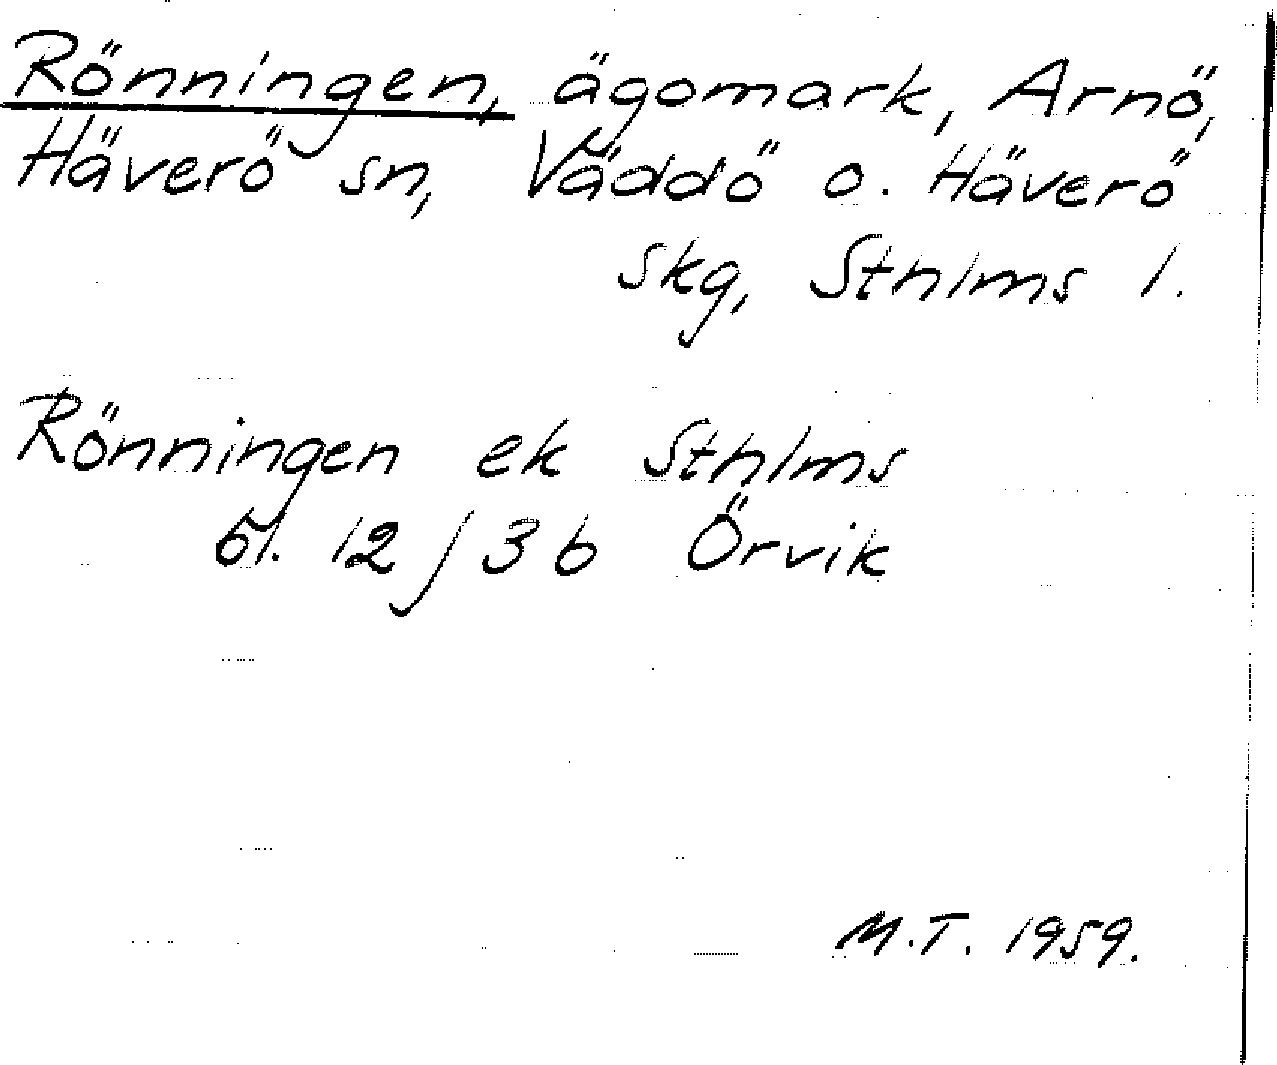 Rönningen, ägomark, Arnö,
Häverö sn, Väddö o. Häverö
skg, Sthlms l.
Rönningen ek Sthlms
bl. 12/36 Örvik
M.T. 1959.